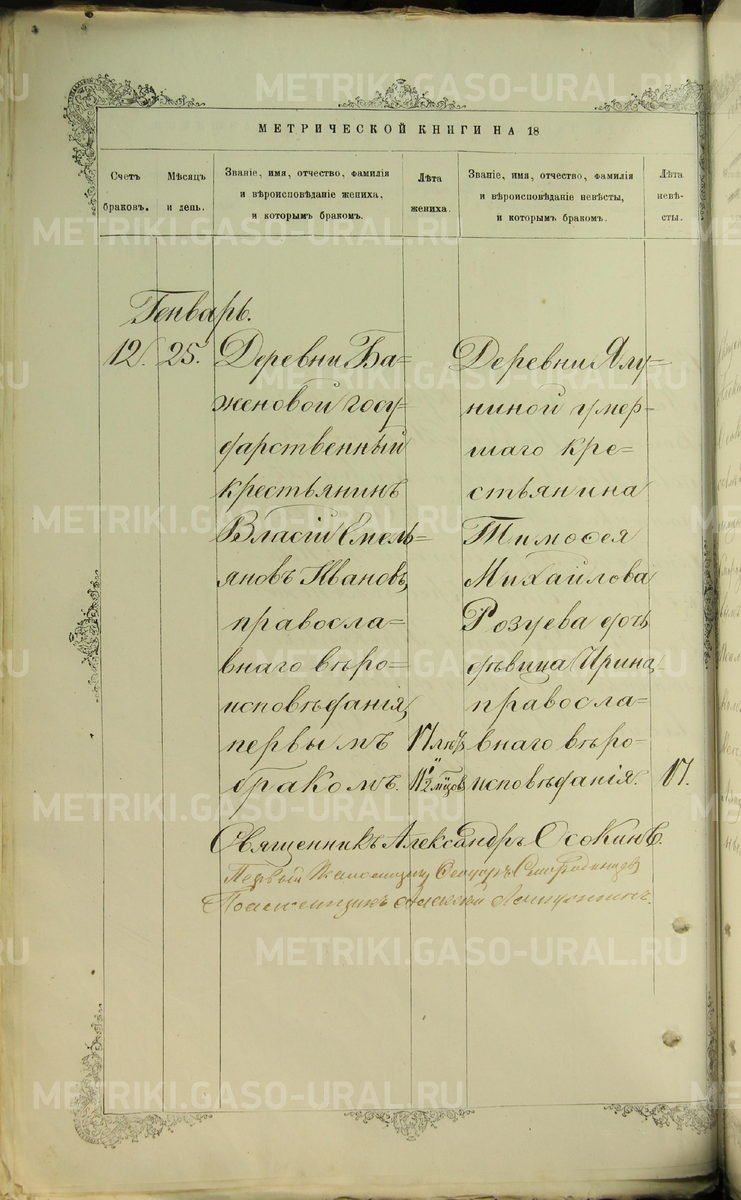 METRIKI.GASO-URAL.RU
МЕТРИЧЕСКОЙ КНИГИ НА 18
Счетъ браковъ.
Мѣсяцъ и день.
Званіе, имя, отчество, фамилія и вѣроисповѣданіе жениха, и которымъ бракомъ.
Лѣта жениха.
Званіе, имя, отчество, фамилія и вѣроисповѣданіе невѣсты, и которымъ бракомъ.
Лѣта невѣ-сты.
Генварь.
12. 25.
Деревни Ба=
женовой госу=
дарственный
крестьянинъ
Власій Емель=
яновъ Ивановъ,
правосла=
внаго вѣро=
исповѣданія,
первымъ
бракомъ.
17 лѣтъ
и
11½ мѣцовъ
Деревни Ялу=
ниной умер=
шаго кре=
стьянина
Тимофея
Михайлова
Розуева дочь
дѣвица Ирина,
правосла=
внаго вѣро=
исповѣданія.
17.
Священникъ Александръ Осокинъ.